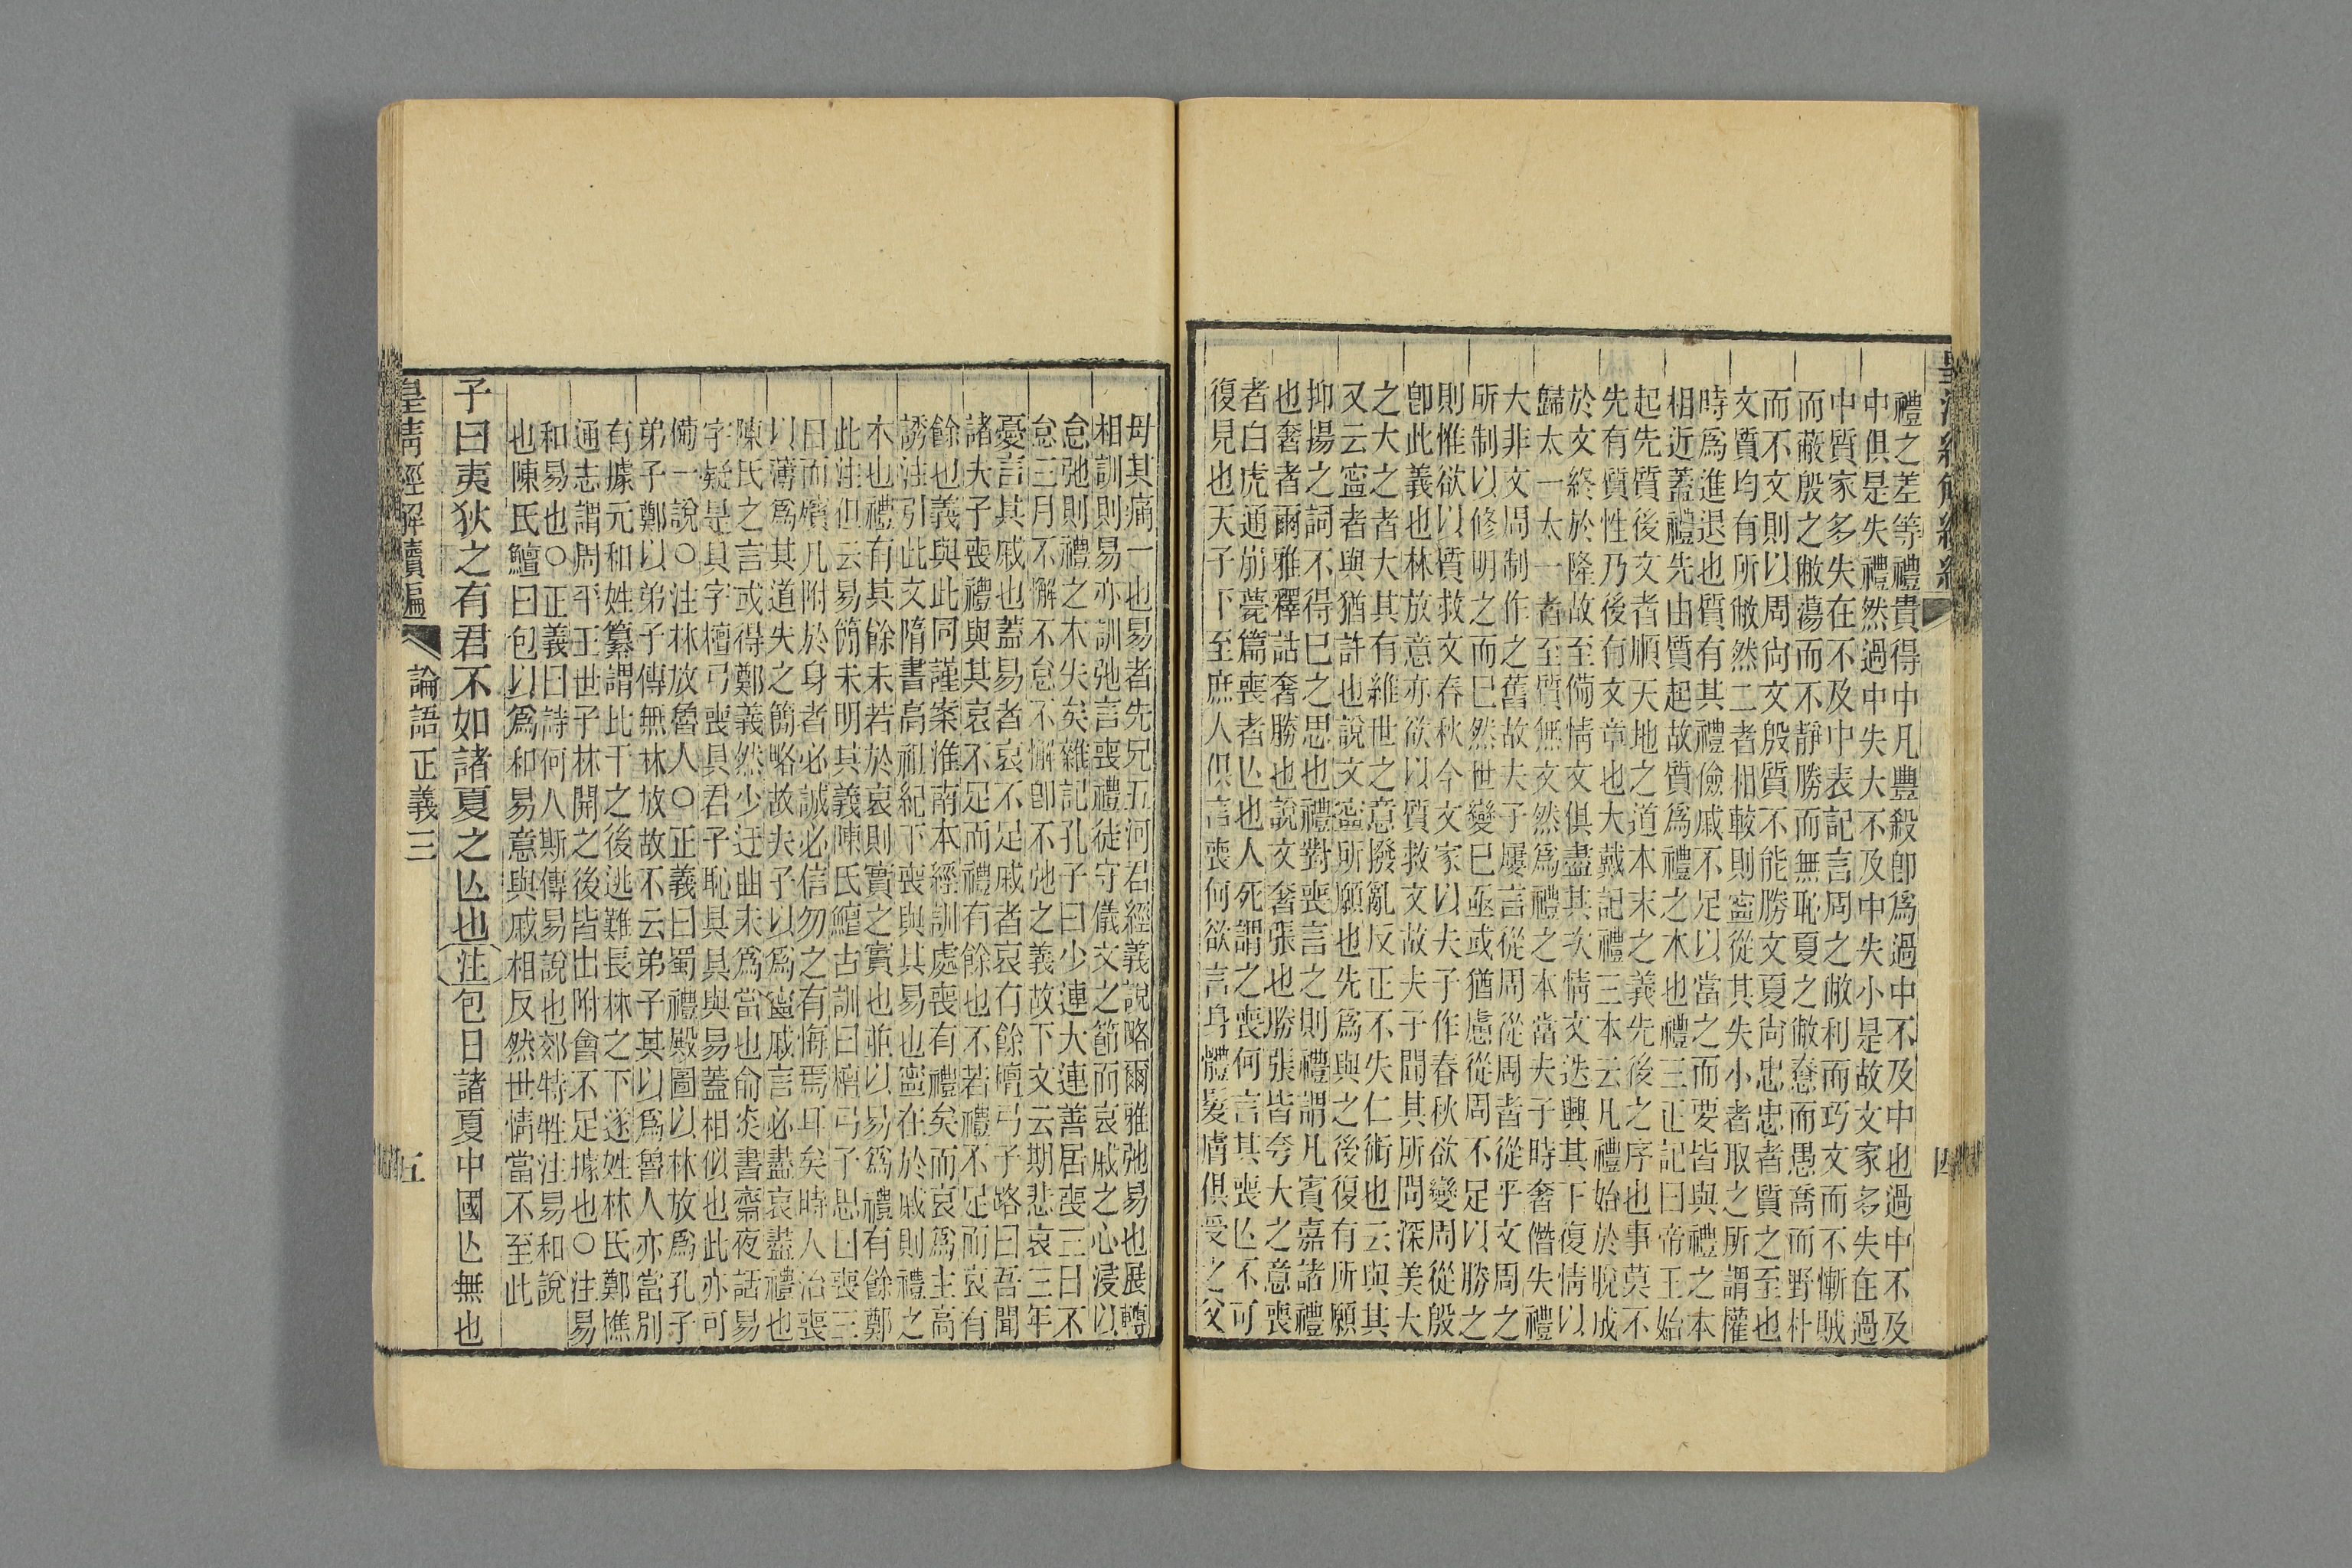 禮之差等禮貴得中凡豐殺卽爲過中不及中也過中不及
中俱是失禮然過中失大不及中失小是故文家多失在過
中質家多失在不及中表記言周之敝利而巧文而不慚賊
而蔽殷之敝蕩而不靜勝而無恥夏之敝惷而愚喬而野朴
而不文則以周尙文殷質不能勝文夏尙忠忠者質之至也
文質均有所敝然二者相較則寍從其失小者取之所謂權
時爲進退也質有其禮儉戚不足以當之而要皆與禮之本
相近蓋禮先由質起故質爲禮之本也禮三正記曰帝王始
起先質後文者順天地之道本末之義先後之序也事莫不
先有質性乃後有文章也大戴記禮三本云凡禮始於脫成
於文終於隆故至備情文俱盡其次情文迭興其下復情以
歸太一太一者至質無文然爲禮之本當夫子時奢僭失禮
大非文周制作之舊故夫子屢言從周從周者從乎文周之
所制以修明之而已然世變已亟或猶慮從周不足以勝之
則惟欲以質救文春秋今文家以夫子作春秋欲變周從殷
卽此義也林放意亦欲以質救文故夫子聞其所問深美大
之大之者大其有維世之意撥亂反正不失仁術也云與其
又云寍者與猶許也說文寍所願也先爲與之後復有所願
抑揚之詞不得已之思也禮對喪言之則禮謂凡賓嘉諸禮
也奢者爾雅釋詁奢勝也說文奢張也勝張皆夸大之意喪
者白虎通崩薨篇喪者亾也人死謂之喪何言其喪亾不可
復見也天子下至庶人俱言喪何欲言身體髮膚俱受之父
母其痛一也易者先兄五河君經義說略爾雅弛易也展轉
相訓則易亦訓弛言喪禮徒守儀文之節而哀戚之心浸以
怠弛則禮之本失矣雜記孔子曰少連大連善居喪三日不
怠三月不懈不怠不懈卽不弛之義故下文云期悲哀三年
憂言其戚也蓋易者哀不足戚者哀有餘檀弓子路曰吾聞
諸夫子喪禮與其哀不足而禮有餘也不若禮不足而哀有
餘也義與此同謹案淮南本經訓處喪有禮矣而哀爲主高
誘注引此文隋書高祖紀下喪與其易也寍在於戚則禮之
本也禮有其餘未若於哀則實之實也並以易爲禮有餘鄭
此注但云易簡未明其義陳氏鱣古訓曰檀弓子思曰喪三
日而殯凡附於身者必誠必信勿之有悔焉耳矣時人治喪
以薄爲其道失之簡略故夫子以爲寍戚言必盡哀盡禮也
陳氏之言或得鄭義然少迂曲未爲當也俞炎書齋夜話易
字疑是具字檀弓喪具君子恥具具與易蓋相似也此亦可
備一說○注林放魯人○正義曰蜀禮殿圖以林放爲孔子
弟子鄭以弟子傳無林放故不云弟子其以爲魯人亦當別
有據元和姓纂謂比干之後逃難長林之下遂姓林氏鄭樵
通志謂周平王世子林開之後皆出附會不足據也○注易
和易也○正義曰詩何人斯傳易說也郊特牲注易和說
也陳氏鱣曰包以爲和易意與戚相反然世情當不至此
子曰夷狄之有君不如諸夏之亾也注包曰諸夏中國亾無也
皇淸經解續編 論語正義三 五